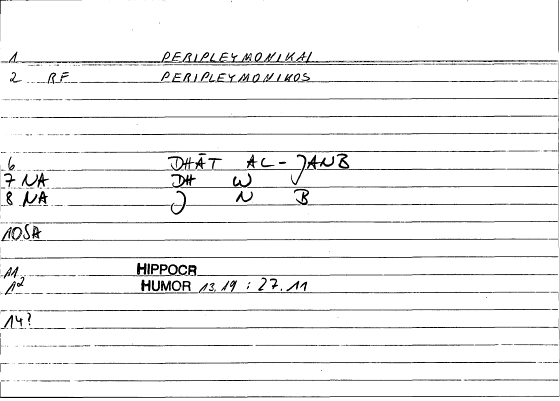 1 PERIPLEYMONIKAI
2 RF PERIPLEYMONIKOS
6 DHĀT AL-JANB
7 NA DH W
8 NA J N B
10SA
11 HIPPOCR
12 HUMOR 13,19 : 27.11
14?